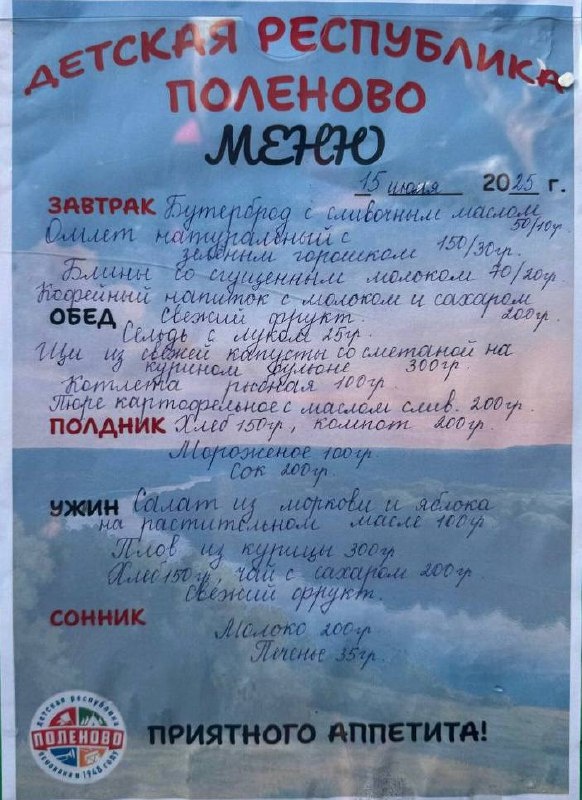 ДЕТСКАЯ РЕСПУБЛИКА
ПОЛЕНОВО
МЕНЮ
15 июля 2025 г.
ЗАВТРАК Бутерброд с сливочным маслом
50/10гр
Омлет натуральный с
зеленым горошком 150/30гр.
Блины со сгущенным молоком 70/20гр.
Кофейный напиток с молоком и сахаром
200гр.
Свежий фрукт.
ОБЕД Сельдь с луком 25гр.
Щи из свежей капусты со сметаной на
курином бульоне 300гр.
Котлета рыбная 100гр.
Пюре картофельное с маслом слив. 200гр.
Хлеб 150гр, компот 200гр.
ПОЛДНИК
Мороженое 100гр.
Сок 200гр.
УЖИН Салат из моркови и яблока
на растительном масле 100гр
Плов из курицы 300гр
Хлеб 150гр, чай с сахаром 200гр.
Свежий фрукт.
СОННИК
Молоко 200гр
Печенье 35гр.
ПРИЯТНОГО АППЕТИТА!
детская республика
ПОЛЕНОВО
основана в 1948 году